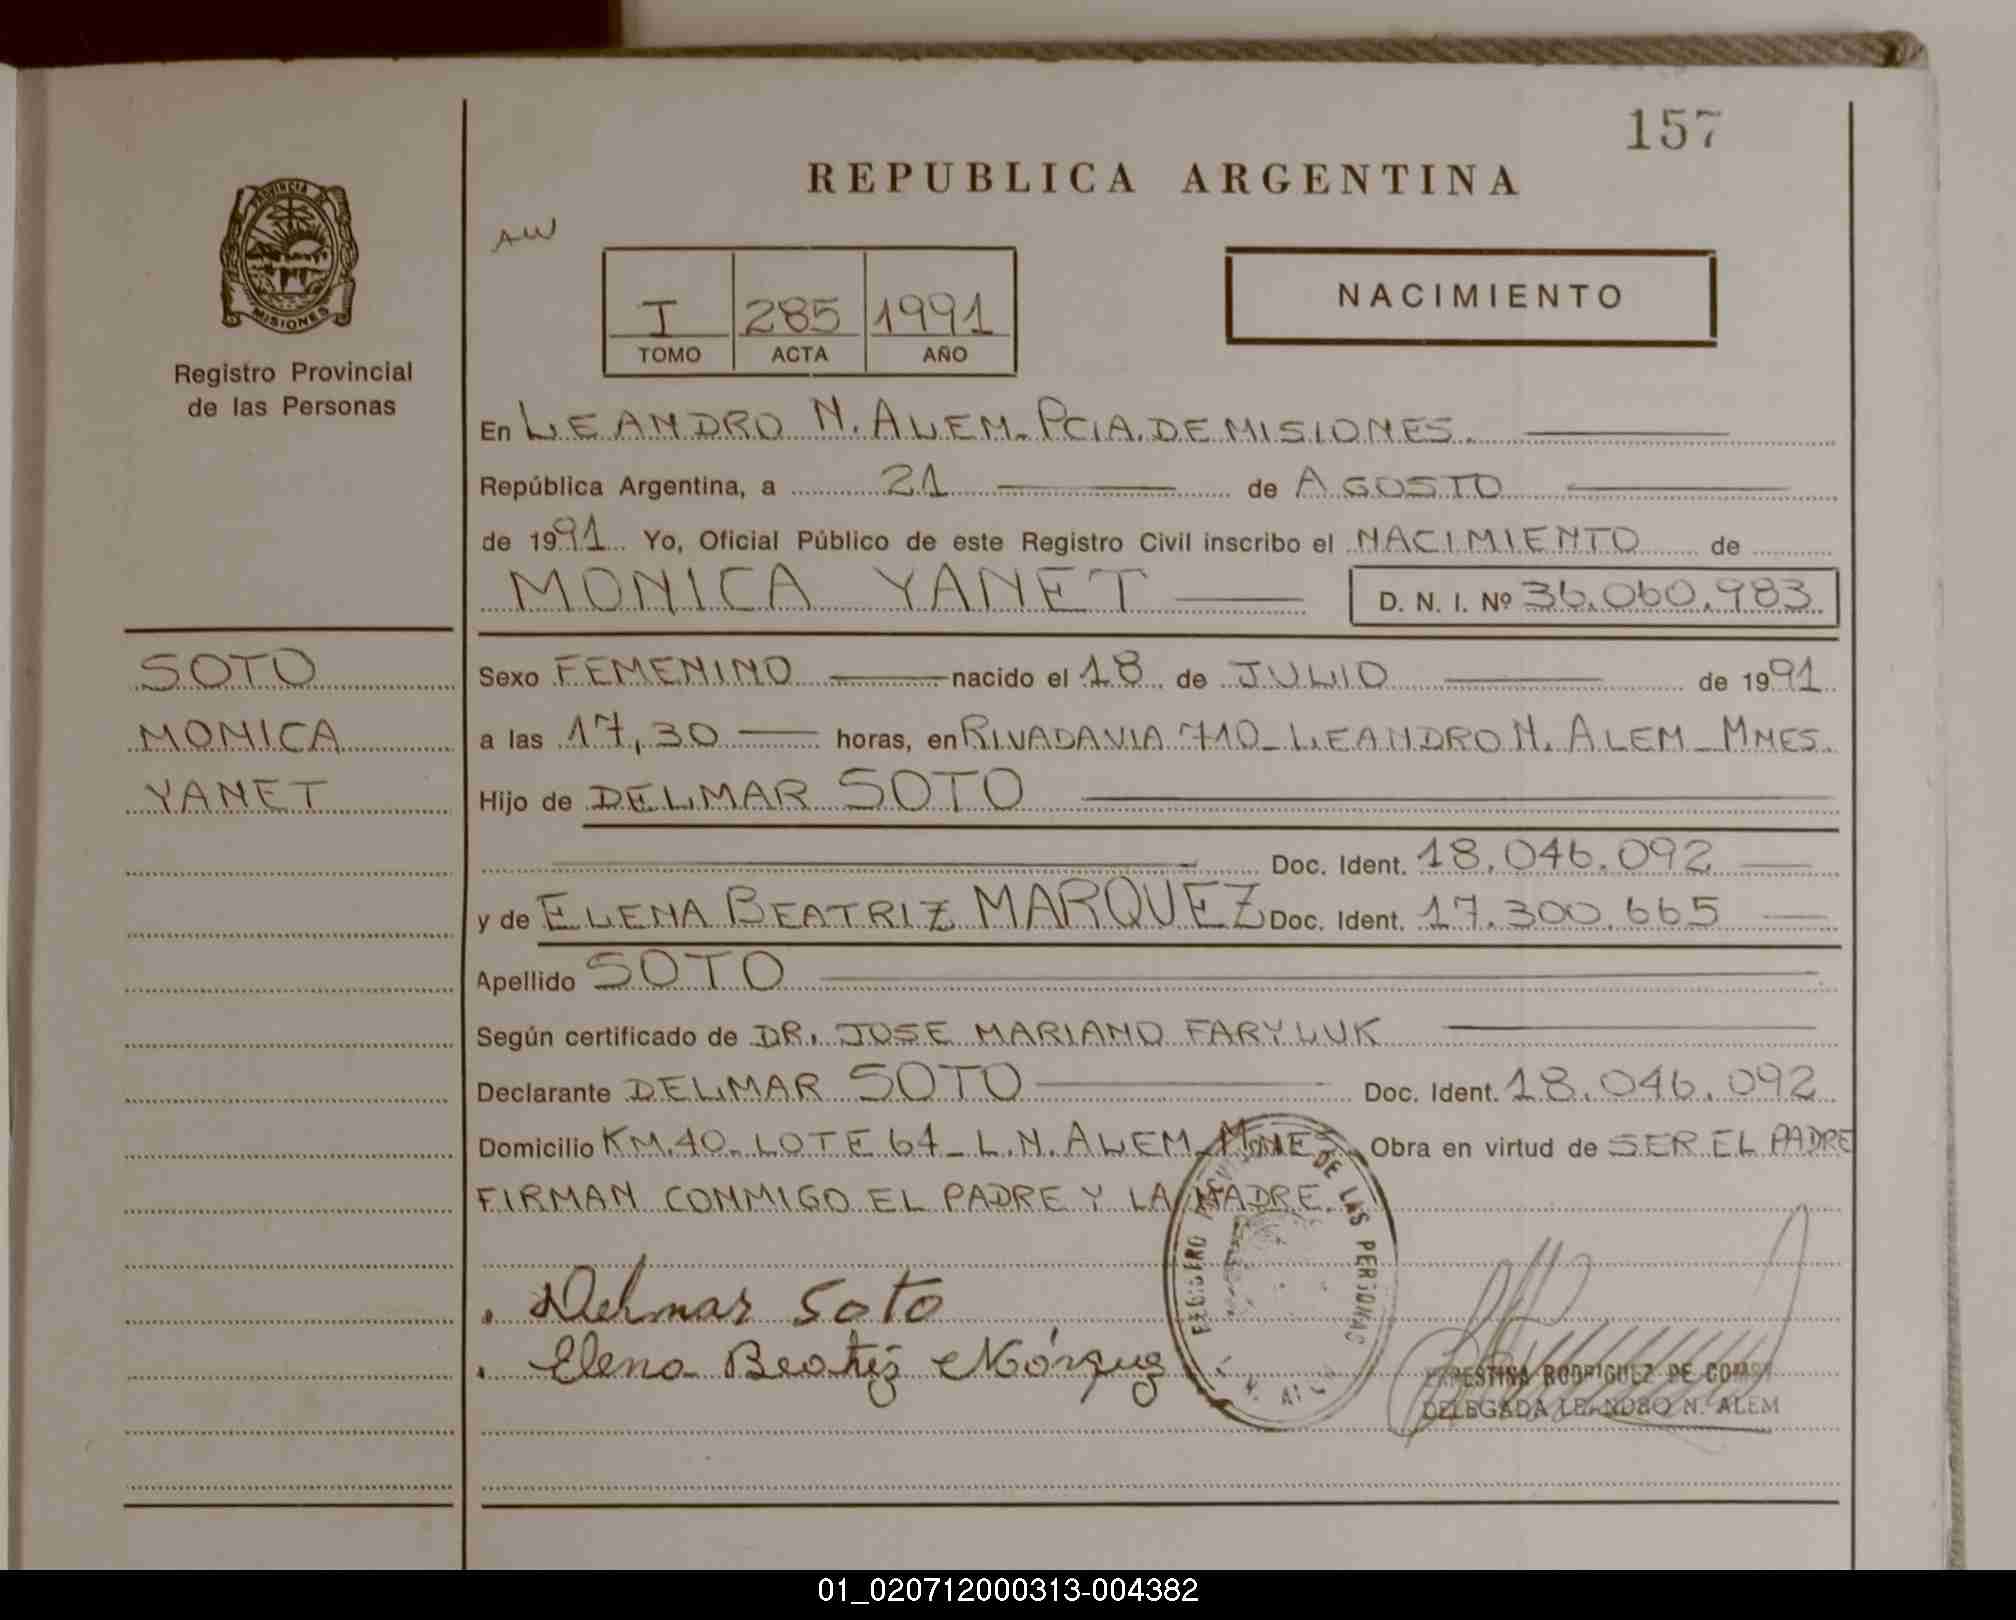 157
REPUBLICA ARGENTINA
PROVINCIA DE
MISIONES
Registro Provincial
de las Personas
AW
I 285 1991
TOMO ACTA AÑO
NACIMIENTO
En LEANDRO N. ALEM - PCIA. DE MISIONES.
República Argentina, a 21 de AGOSTO
de 1991 Yo, Oficial Público de este Registro Civil inscribo el NACIMIENTO de
MONICA YANET D. N. I. Nº 36.060.983
SOTO
MONICA
YANET
Sexo FEMENINO nacido el 18 de JULIO de 1991
a las 17,30 horas, en RIVADAVIA 710 - LEANDRO N. ALEM - MNES.
Hijo de DELMAR SOTO
Doc. Ident. 18.046.092
y de ELENA BEATRIZ MARQUEZ Doc. Ident. 17.300.665
Apellido SOTO
Según certificado de DR. JOSE MARIANO FARYLUK
Declarante DELMAR SOTO Doc. Ident. 18.046.092
Domicilio KM. 40 - LOTE 64 - L. N. ALEM - MNES Obra en virtud de SER EL PADRE
FIRMAN CONMIGO EL PADRE Y LA MADRE.
REGISTRO DE LAS PERSONAS
Delmar Soto
Elena Beatriz Márquez
RODRIGUEZ DE
DELEGADA LEANDRO N. ALEM
01_020712000313-004382